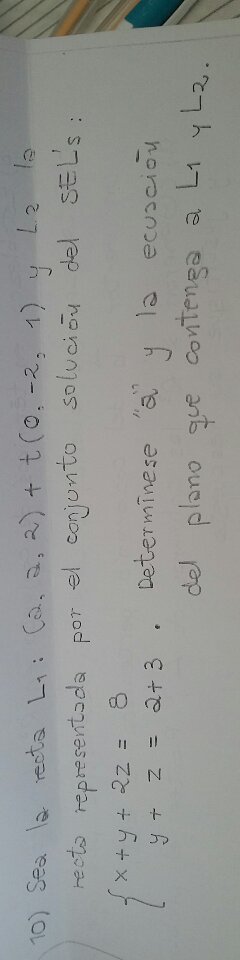 10) Sea la recta L1: (a, a, 2) + t(0, -2, 1) y L2 la
recta representada por el conjunto solución del SEL's:
{ x + y + 2z = 8
y + z = a+3 . Determínese "a" y la ecuación
del plano que contenga a L1 y L2.